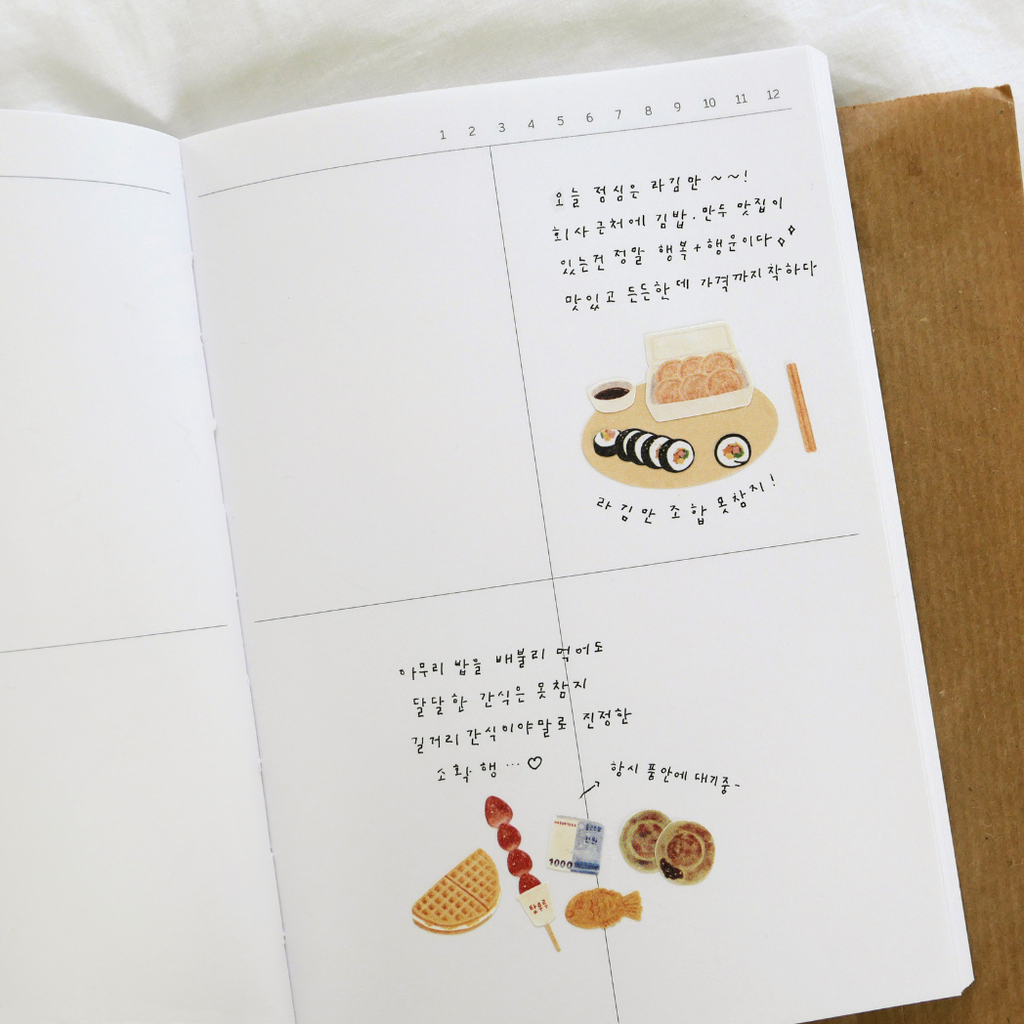 1 2 3 4 5 6 7 8 9 10 11 12
오늘 점심은 라김만 ~~!
회사 근처에 김밥·만두 맛집이
있는건 정말 행복+행운이다
맛있고 든든한데 가격까지 착하다
라김만 조합 못참지!
아무리 밥을 배불리 먹어도
달달한 간식은 못참지
길거리 간식이야말로 진정한
소확행 ··· ♡
항시 품안에 대기중-
천원
1000
탕후루